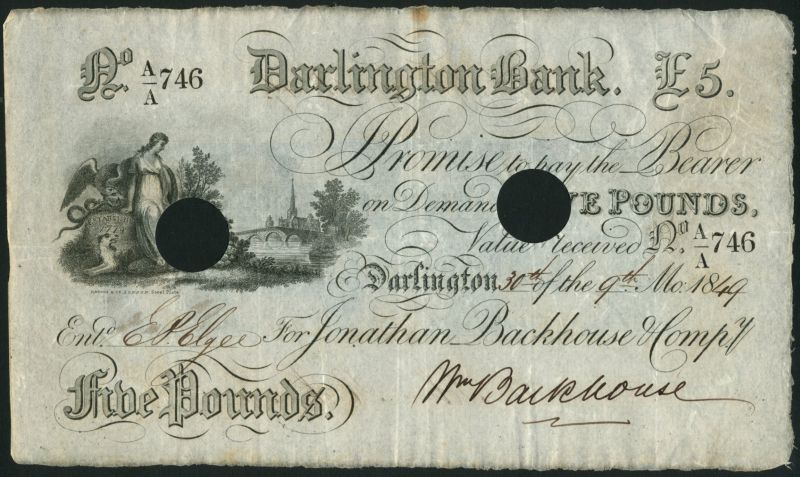 No. A/A 746 Darlington Bank. £5.
I Promise to pay the Bearer
on Demand FIVE POUNDS.
Value received No. A/A 746
Darlington 30th of the 9th Mo. 1849
Entd. For Jonathan Backhouse & Compy
Five Pounds. Wm Backhouse